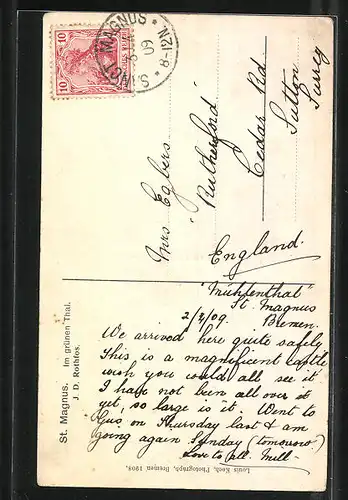 10
10
ST. MAGNUS
8-12N.
09
Mrs Egbers
Rutherford
Cedar Rd.
Sutton
Surrey
England.
St. Magnus. Im grünen Thal.
J. D. Rothfos.
"Mühlenthal"
St. Magnus
Bremen.
2/7/09
We arrived here quite safely
This is a magnificent castle
wish you could all see it
I have not been all over it
yet, so large is it. Went to
on Thursday last & am
going again Sunday (tomorrow)
Love to all. Mill-
Louis Koch, Photograph, Bremen 1908.